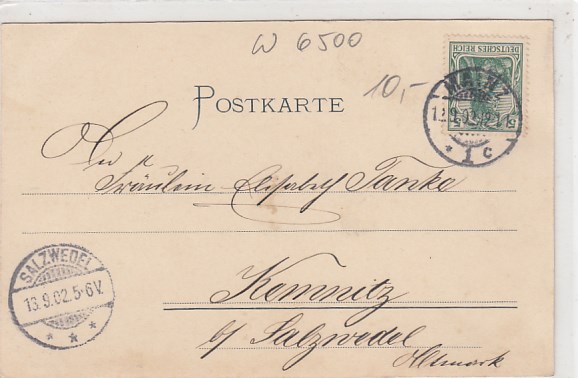 W 6500
10,-
DEUTSCHES REICH
5 5
MAINZ
12.9.02.12-1N.
* 1 c
POSTKARTE
An
Fräulein Elisabeth Tanke
Kemnitz
b/ Salzwedel
Altmark
SALZWEDEL
13.9.02.5-6V.
* * *